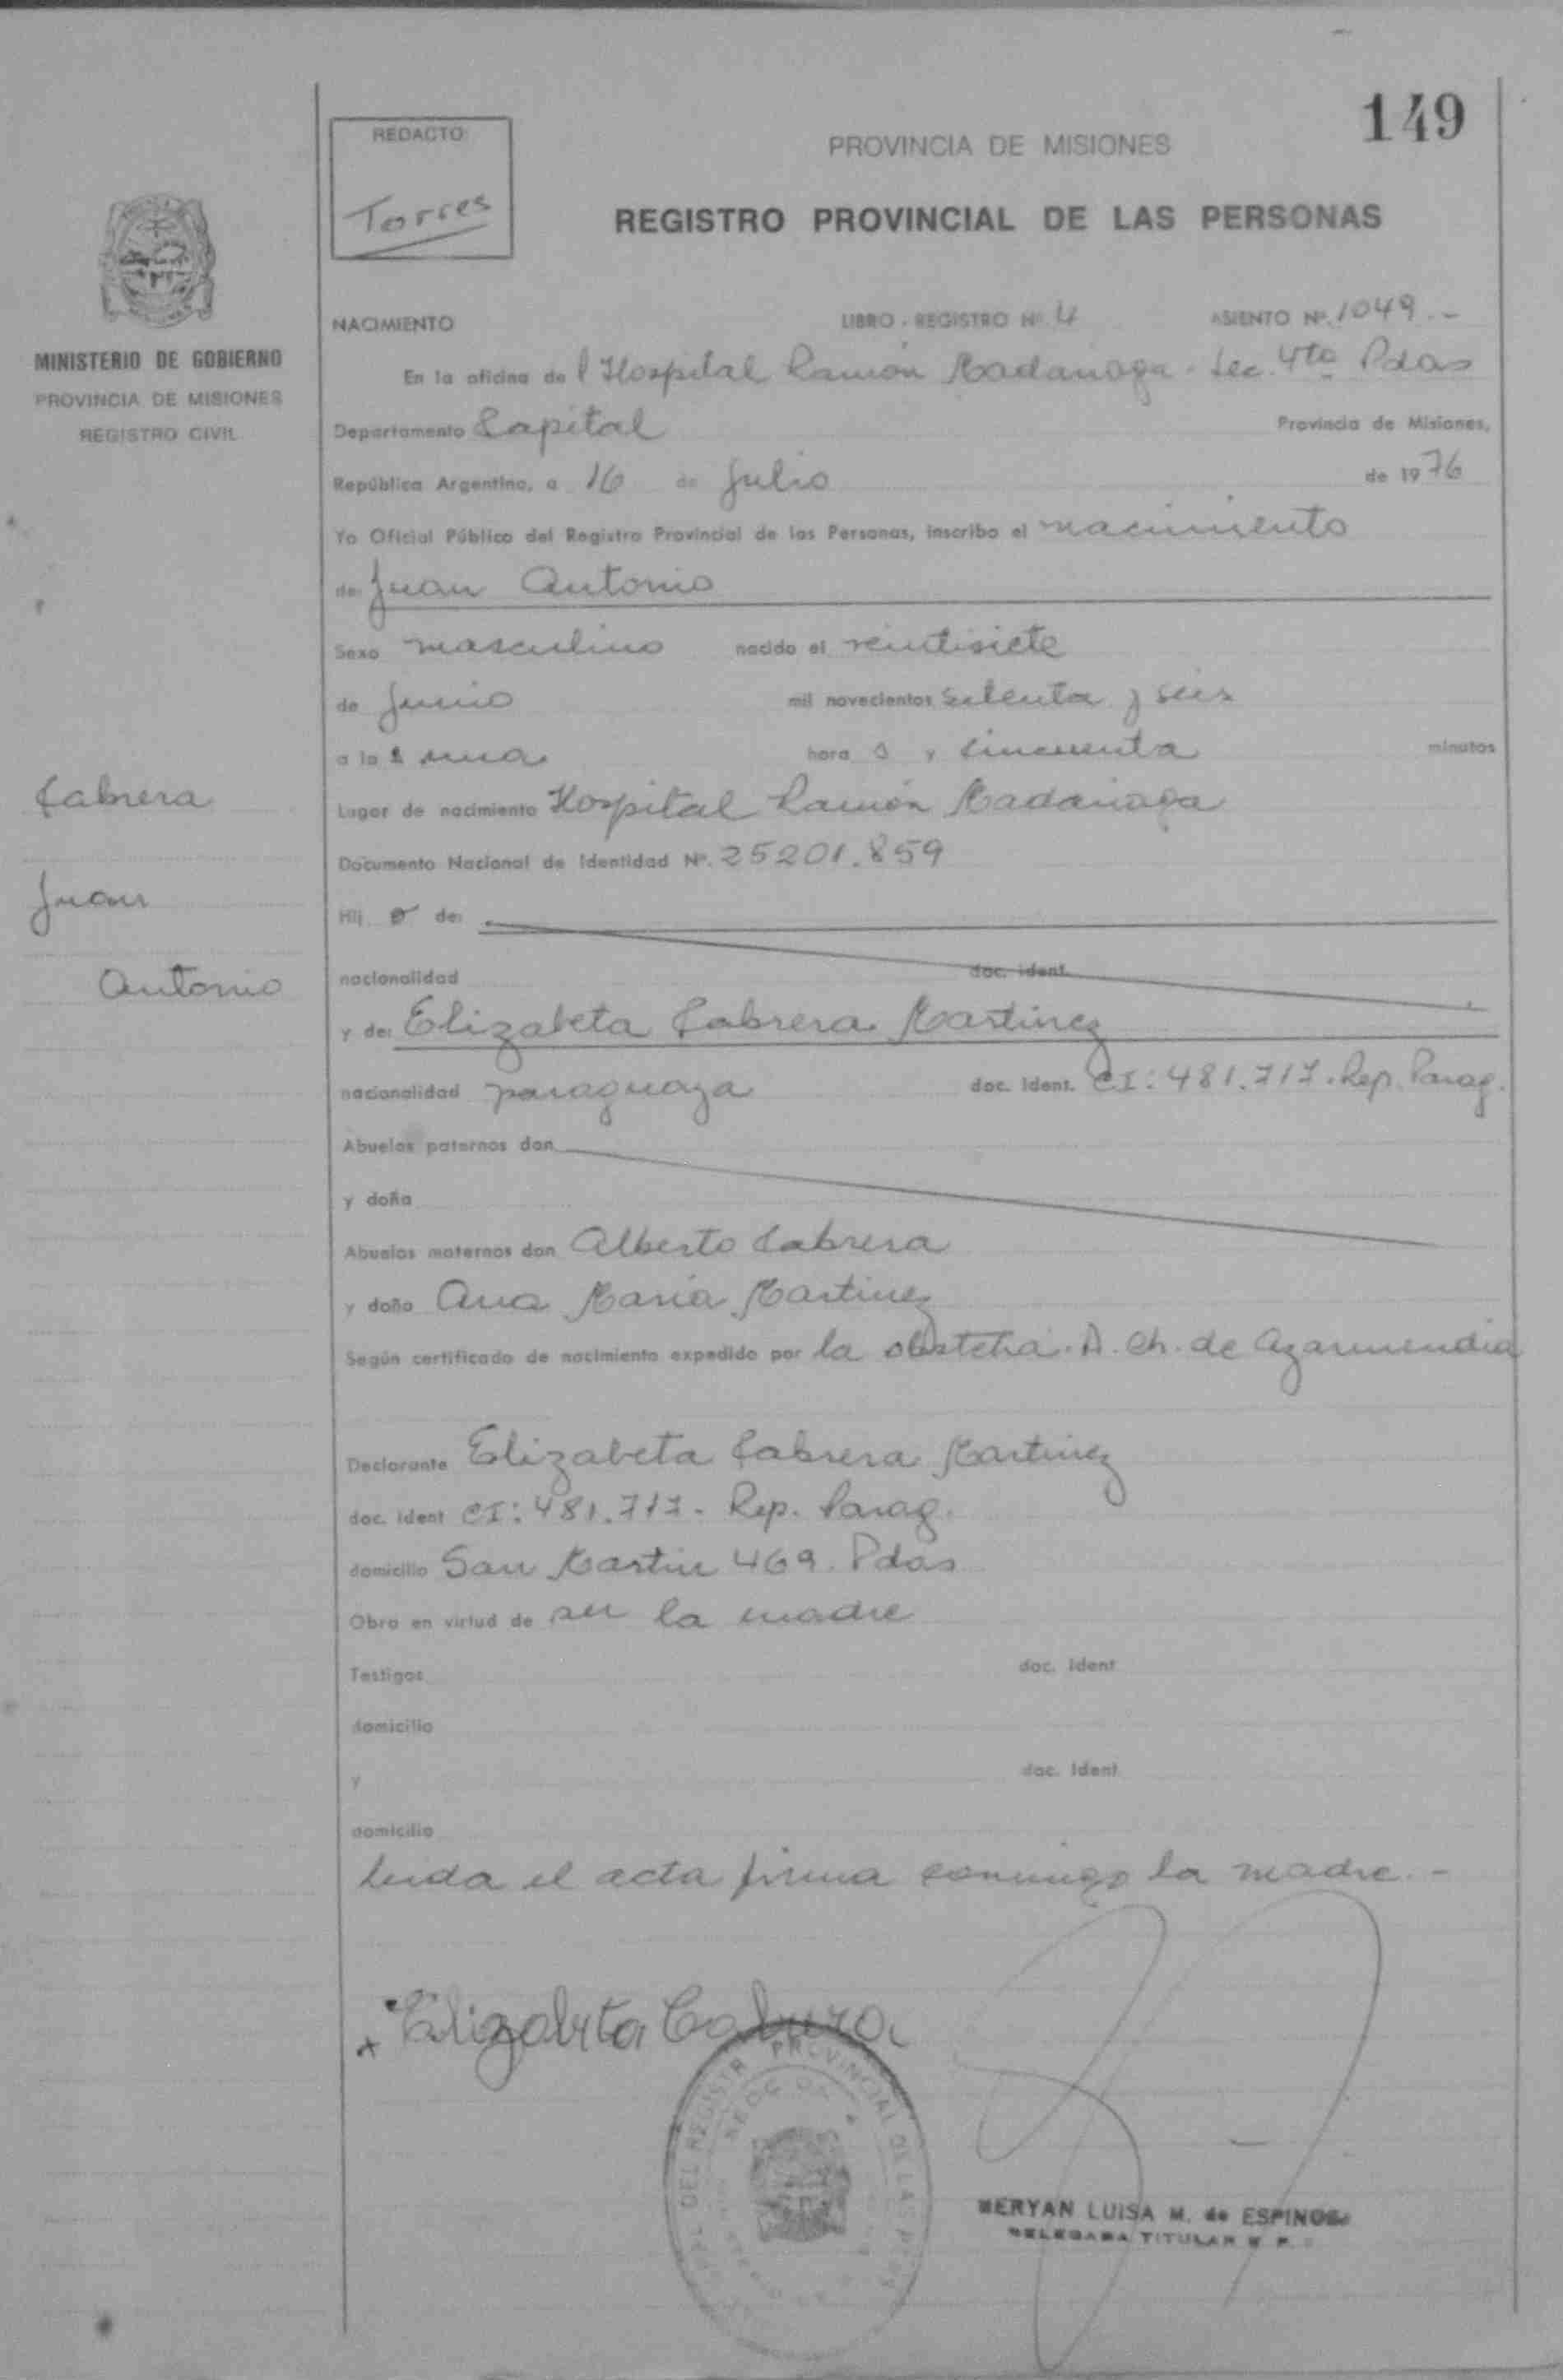 149
REDACTO
Torres
PROVINCIA DE MISIONES
REGISTRO PROVINCIAL DE LAS PERSONAS
MINISTERIO DE GOBIERNO
PROVINCIA DE MISIONES
REGISTRO CIVIL
NACIMIENTO LIBRO - REGISTRO Nº 4 ASIENTO Nº 1049.-
En la oficina del Hospital Ramón Madariaga - Sec. 4ta Pdas
Departamento Capital Provincia de Misiones,
República Argentina, a 16 de Julio de 1976
Yo Oficial Público del Registro Provincial de las Personas, inscribo el nacimiento
de: Juan Antonio
Sexo masculino nacido el veintisiete
de Junio mil novecientos setenta y seis
a la una hora y cincuenta minutos
Lugar de nacimiento Hospital Ramón Madariaga
Documento Nacional de Identidad Nº. 25201.859
Hij o de:
nacionalidad doc. ident.
y de: Elizabeta Cabrera Martinez
nacionalidad paraguaya doc. Ident. CI: 481.717. Rep. Parag.
Abuelos paternos don
y doña
Abuelos maternos don Alberto Cabrera
y doña Ana María Martinez
Según certificado de nacimiento expedido por la obstetra. A. Ch. de Azarmendia
Declarante Elizabeta Cabrera Martinez
doc. ident CI: 481.717 - Rep. Parag.
domicilio San Martin 469. Pdas
Obra en virtud de ser la madre
Testigos doc. Ident
domicilio
y doc. Ident
domicilio
Leida el acta firma conmigo la madre.-
Cabrera
Juan
Antonio
x Elizabeta Cabrera
DEL REGISTR PROVINCIAL DE LAS PERS
MERYAN LUISA M. de ESPINOSA
DELEGADA TITULAR R. P.